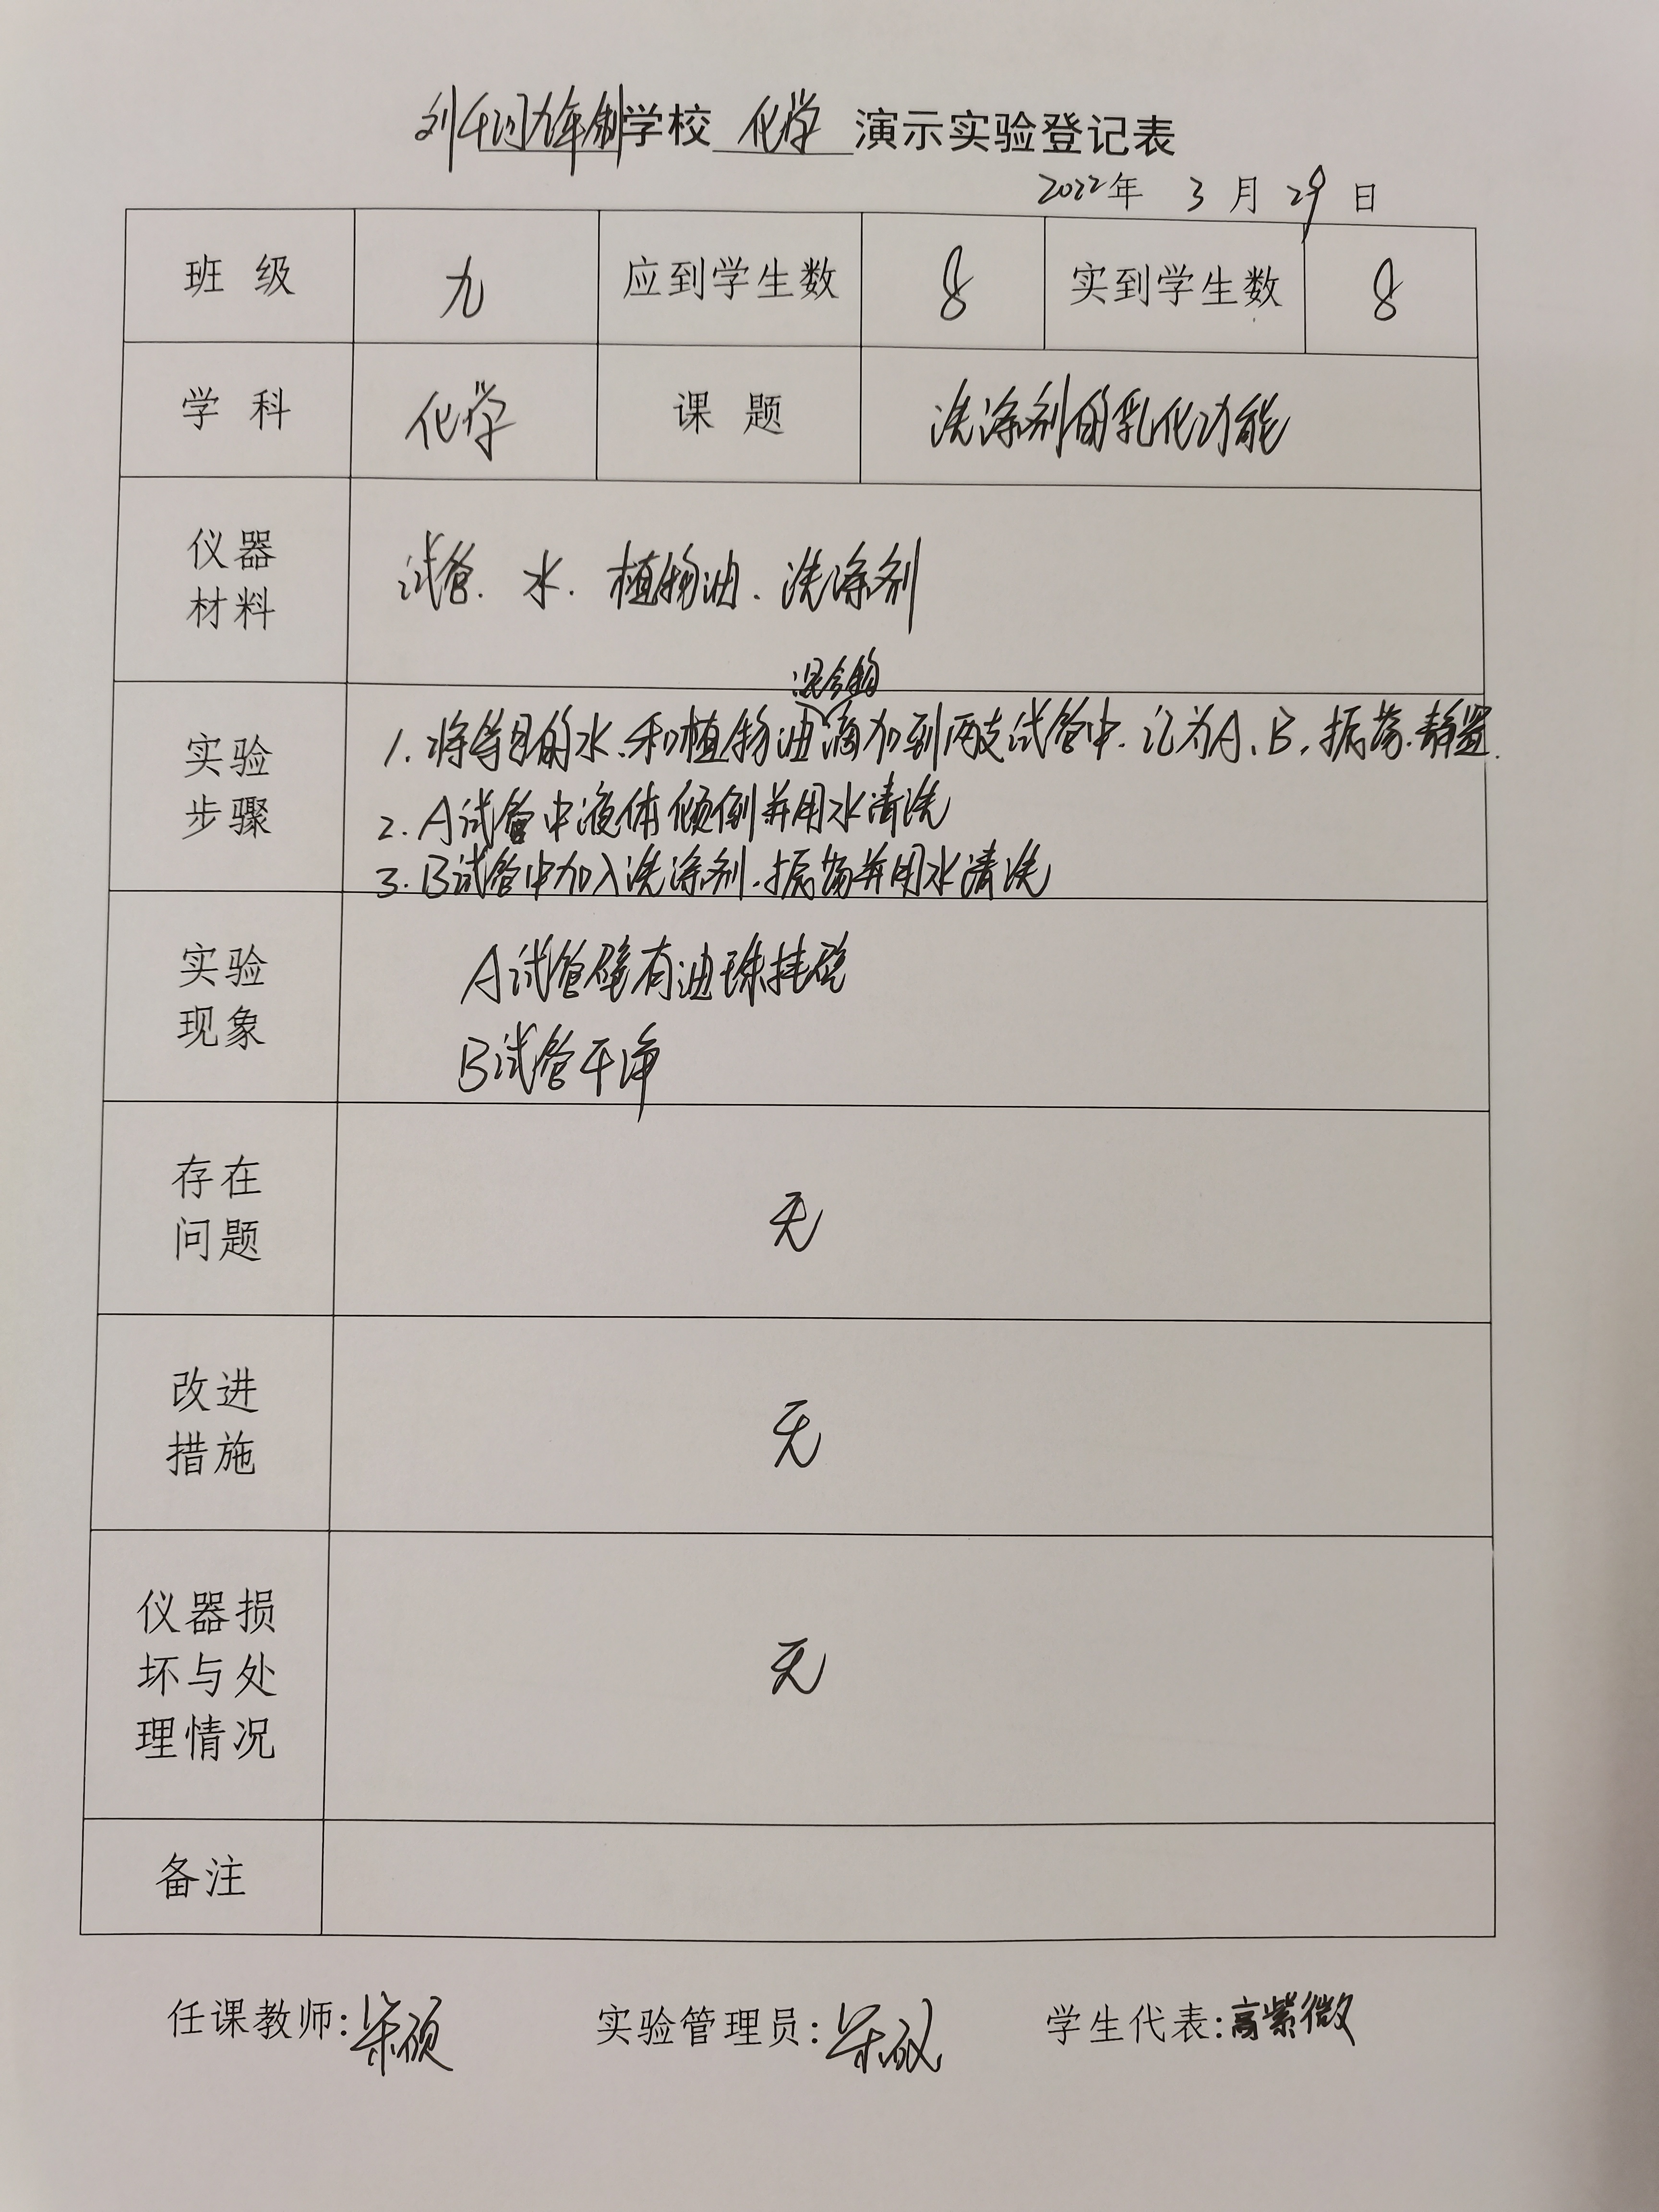 刘千门九年制学校 化学 演示实验登记表
2022年 3月29日
班级 九 应到学生数 8 实到学生数 8
学科 化学 课题 洗涤剂的乳化功能
仪器
材料
试管、水、植物油、洗涤剂
实验
步骤
混合物
1. 将等量的水、和植物油滴加到两支试管中.记为A、B,振荡.静置.
2. A试管中液体倾倒并用水清洗
3. B试管中加入洗涤剂.振荡并用水清洗
实验
现象
A试管壁有油珠挂壁
B试管干净
存在
问题
无
改进
措施
无
仪器损
坏与处
理情况
无
备注
任课教师: 实验管理员: 学生代表:高紫微